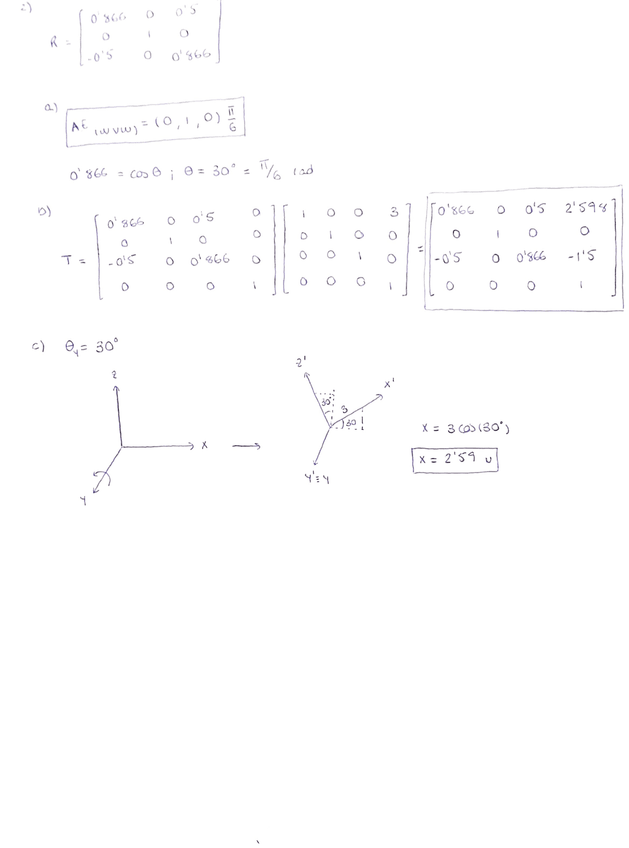 2)
R = [ 0'866 0 0'5
0 1 0
-0'5 0 0'866 ]
a)
AE (WVW) = (0, 1, 0) π/6
0'866 = cos θ ; θ = 30° = π/6 rad
b)
T = [ 0'866 0 0'5 0 ] [ 1 0 0 3 ] = [ 0'866 0 0'5 2'598 ]
0 1 0 0 0 1 0 0 0 1 0 0
-0'5 0 0'866 0 0 0 1 0 -0'5 0 0'866 -1'5
0 0 0 1 0 0 0 1 0 0 0 1
c) θy = 30°
z
x
y
→
z'
x'
30°
3
30
y' ≡ y
x = 3 cos(30°)
x = 2'59 u